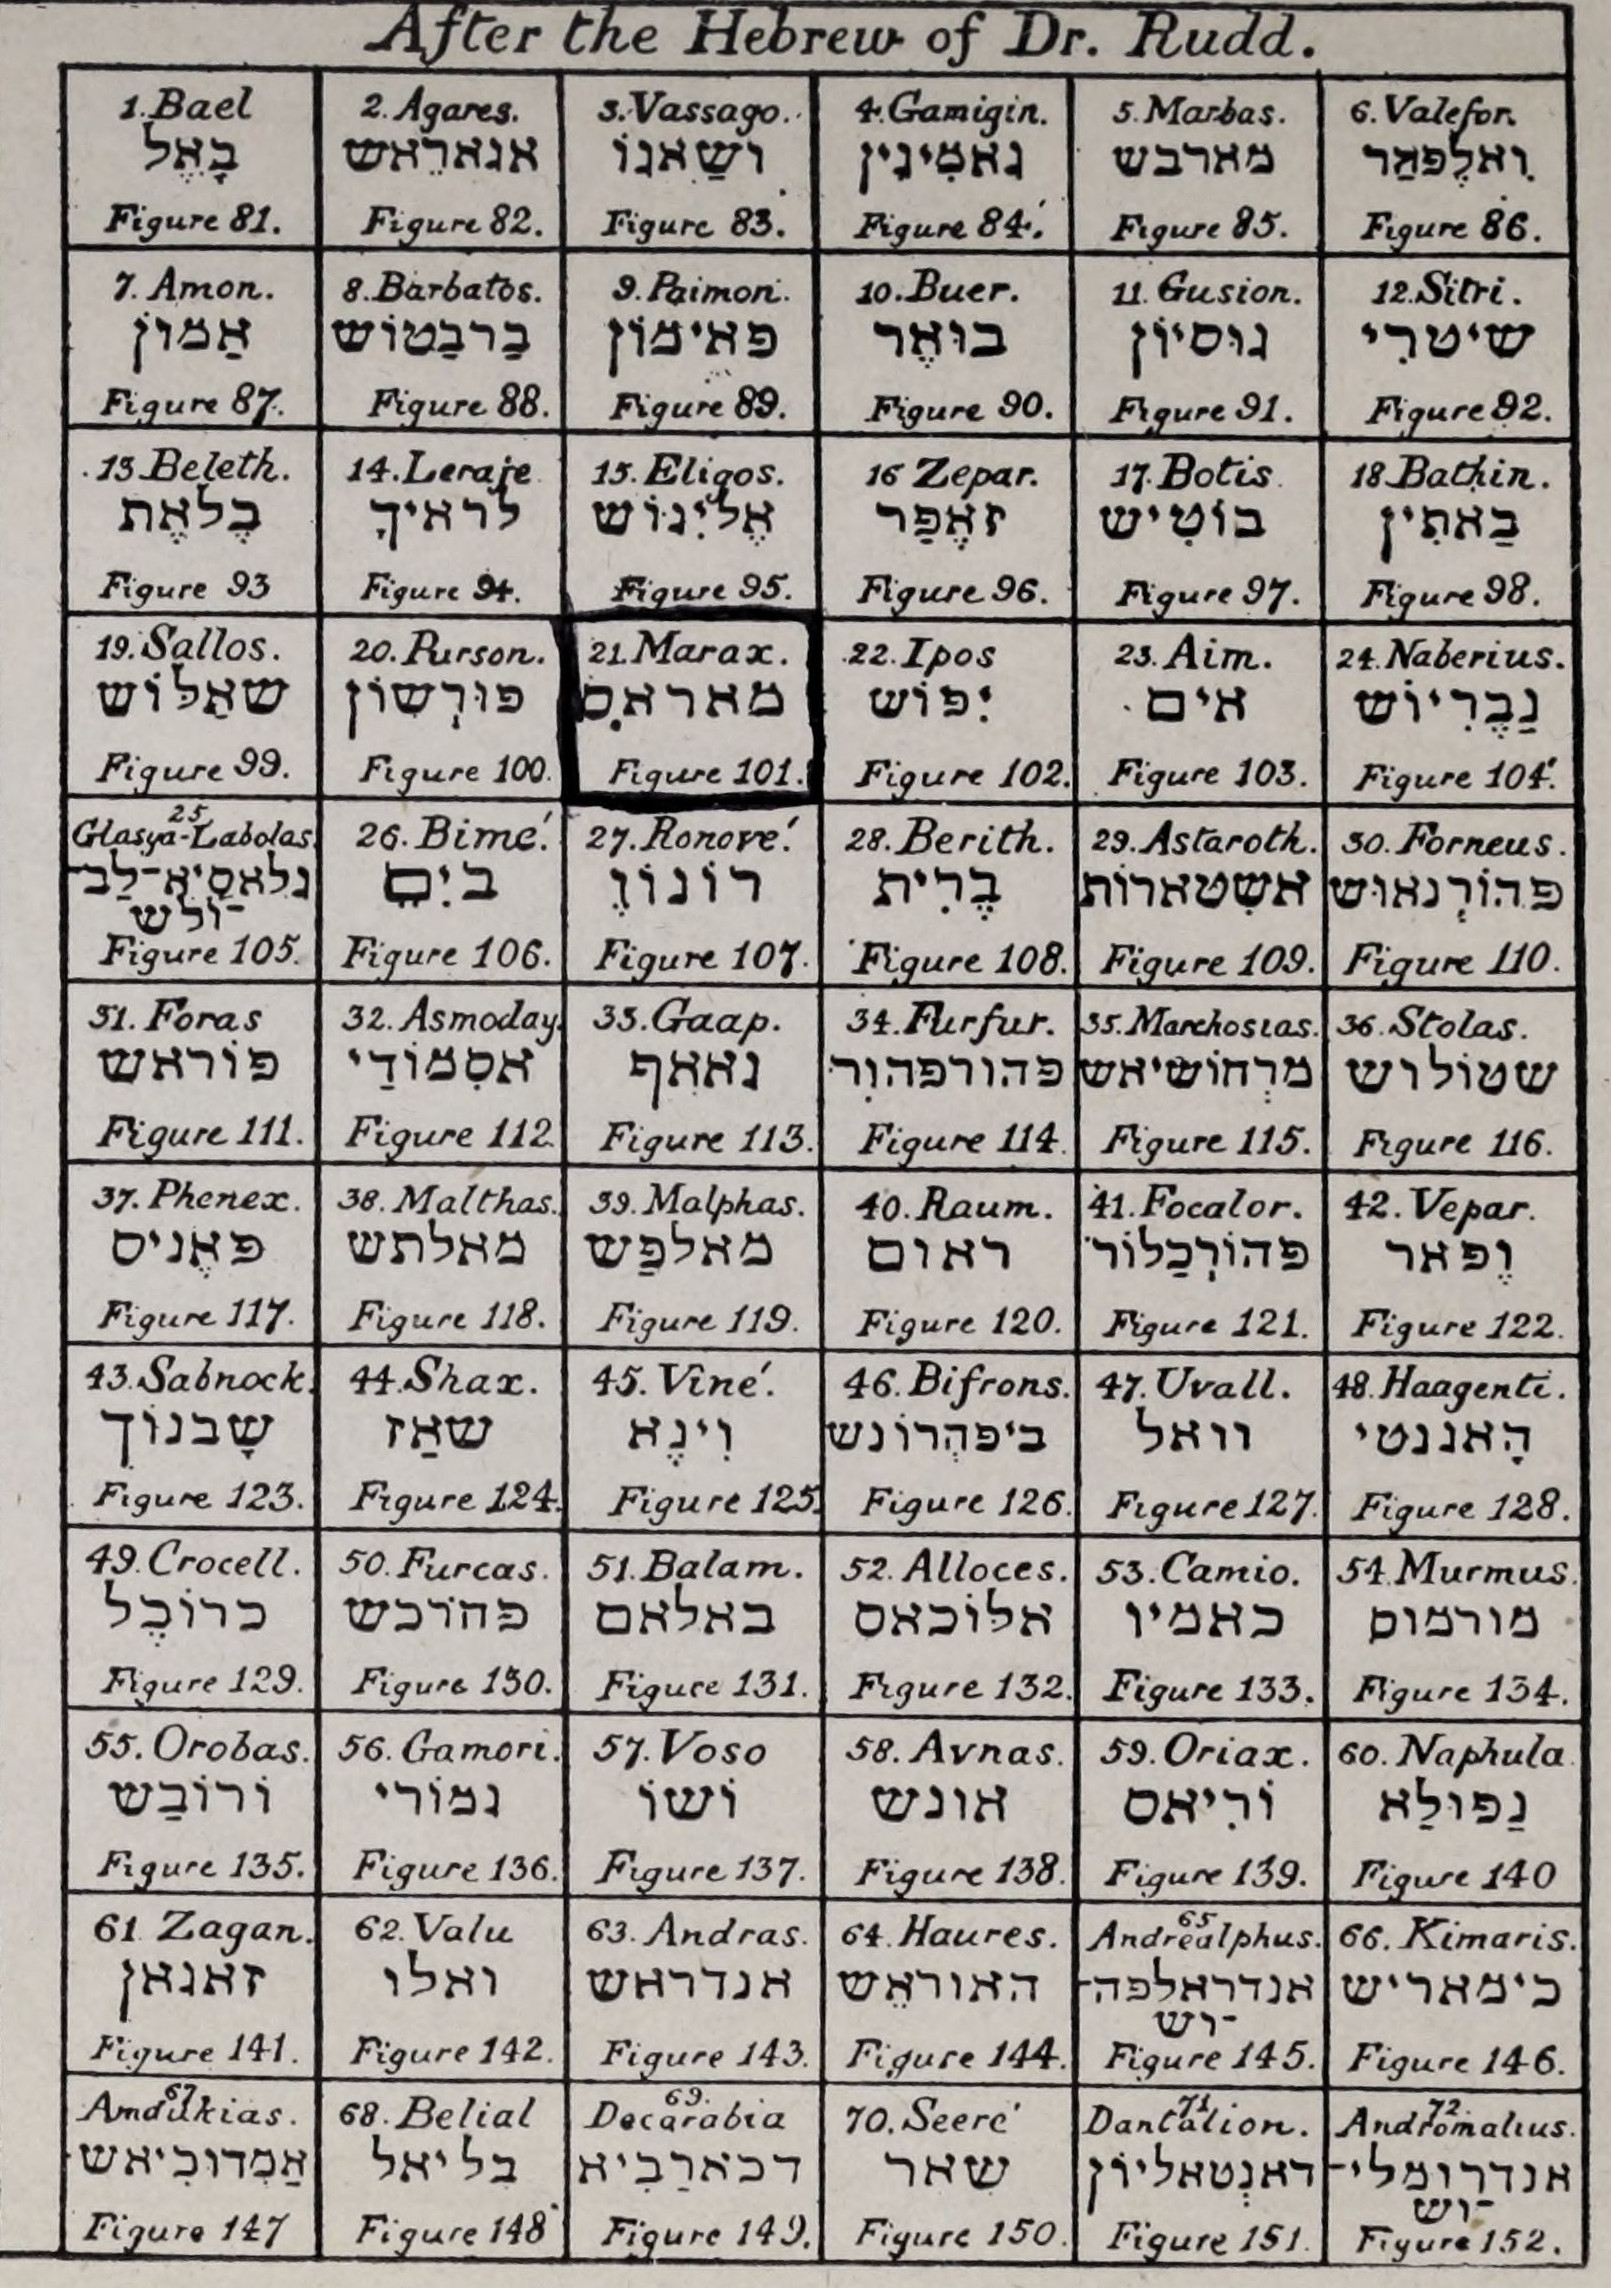 After the Hebrew of Dr. Rudd.
1. Bael
בָּאֵל
Figure 81.
2. Agares.
אגארֵאש
Figure 82.
3. Vassago.
ושַאגוֹ
Figure 83.
4. Gamigin.
גאמִיגִין
Figure 84.
5. Marbas.
מארבש
Figure 85.
6. Valefor.
Figure 86.
7. Amon.
אַמוֹן
Figure 87.
8. Barbatos.
בַּרבַּטוֹש
Figure 88.
9. Paimon.
פאימוֹן
Figure 89.
10. Buer.
בוּאֶר
Figure 90.
11. Gusion.
גוּסיוֹן
Figure 91.
12. Sitri.
שיטרִי
Figure 92.
13. Beleth.
בֶלאֶת
Figure 93
14. Leraje
לראיךָ
Figure 94.
15. Eligos.
אֶליִגוֹש
Figure 95.
16 Zepar.
זאֶפַּר
Figure 96.
17. Botis
בוֹטִיש
Figure 97.
18. Bathin.
בַּאתִין
Figure 98.
19. Sallos.
שאַלוֹש
Figure 99.
20. Purson.
פוּרְשוֹן
Figure 100.
21. Marax.
מאראס
Figure 101.
22. Ipos
יִפּוֹש
Figure 102.
23. Aim.
אים
Figure 103.
24. Naberius.
נַבֶּרִיוֹש
Figure 104.
25
Glasya-Labolas
גלאסיא־לב־
־ולש
Figure 105.
26. Bimé.
ביִם
Figure 106.
27. Ronové.
רוֹנוֹוֶ
Figure 107.
28. Berith.
בֶּרִית
Figure 108.
29. Astaroth.
אשטארוֹת
Figure 109.
30. Forneus.
פהוֹרְנאוּש
Figure 110.
31. Foras
פוֹראש
Figure 111.
32. Asmoday.
אסְמוֹדַי
Figure 112.
33. Gaap.
גאאף
Figure 113.
34. Furfur.
פהורפהור
Figure 114.
35. Marchosias.
מרְחוֹשיאש
Figure 115.
36. Stolas.
שטוֹלוש
Figure 116.
37. Phenex.
פאֶניס
Figure 117.
38. Malthas.
מאלתש
Figure 118.
39. Malphas.
מאלפַּש
Figure 119.
40. Raum.
ראום
Figure 120.
41. Focalor.
פהוֹרְכַלוֹר
Figure 121.
42. Vepar.
וֶפאר
Figure 122.
43. Sabnock.
שָבנוֹך
Figure 123.
44. Shax.
שאַז
Figure 124.
45. Viné.
וִינֶא
Figure 125.
46. Bifrons.
ביפהְרוֹנש
Figure 126.
47. Uvall.
וואל
Figure 127.
48. Haagenti.
הָאגנטי
Figure 128.
49. Crocell.
כרוֹכֶל
Figure 129.
50. Furcas.
פהֹרכש
Figure 130.
51. Balam.
באלאם
Figure 131.
52. Alloces.
אלוֹכאס
Figure 132.
53. Camio.
כאמיו
Figure 133.
54. Murmus.
מורמוס
Figure 134.
55. Orobas.
וֹרוֹבַּש
Figure 135.
56. Gamori.
גמוֹרי
Figure 136.
57. Voso
וֹשוֹ
Figure 137.
58. Avnas.
אונש
Figure 138.
59. Oriax.
וֹרִיאס
Figure 139.
60. Naphula
נַפוּלַא
Figure 140
61 Zagan.
זאגאן
Figure 141.
62. Valu
ואלו
Figure 142.
63. Andras.
אנדראש
Figure 143.
64. Haures.
האוראֵש
Figure 144.
65
Andrealphus.
אנדראלפה־
־וש
Figure 145.
66. Kimaris.
כימאריש
Figure 146.
67
Amdukias.
אַמְדוּכִיאש
Figure 147
68. Belial
בליאל
Figure 148
69.
Decarabia
דכארַבִיא
Figure 149.
70. Seeré
שאר
Figure 150.
71
Dantalion.
דאנְטאליוֹן
Figure 151.
72.
Andromalius.
אנדרומלי־
־וש
Figure 152.